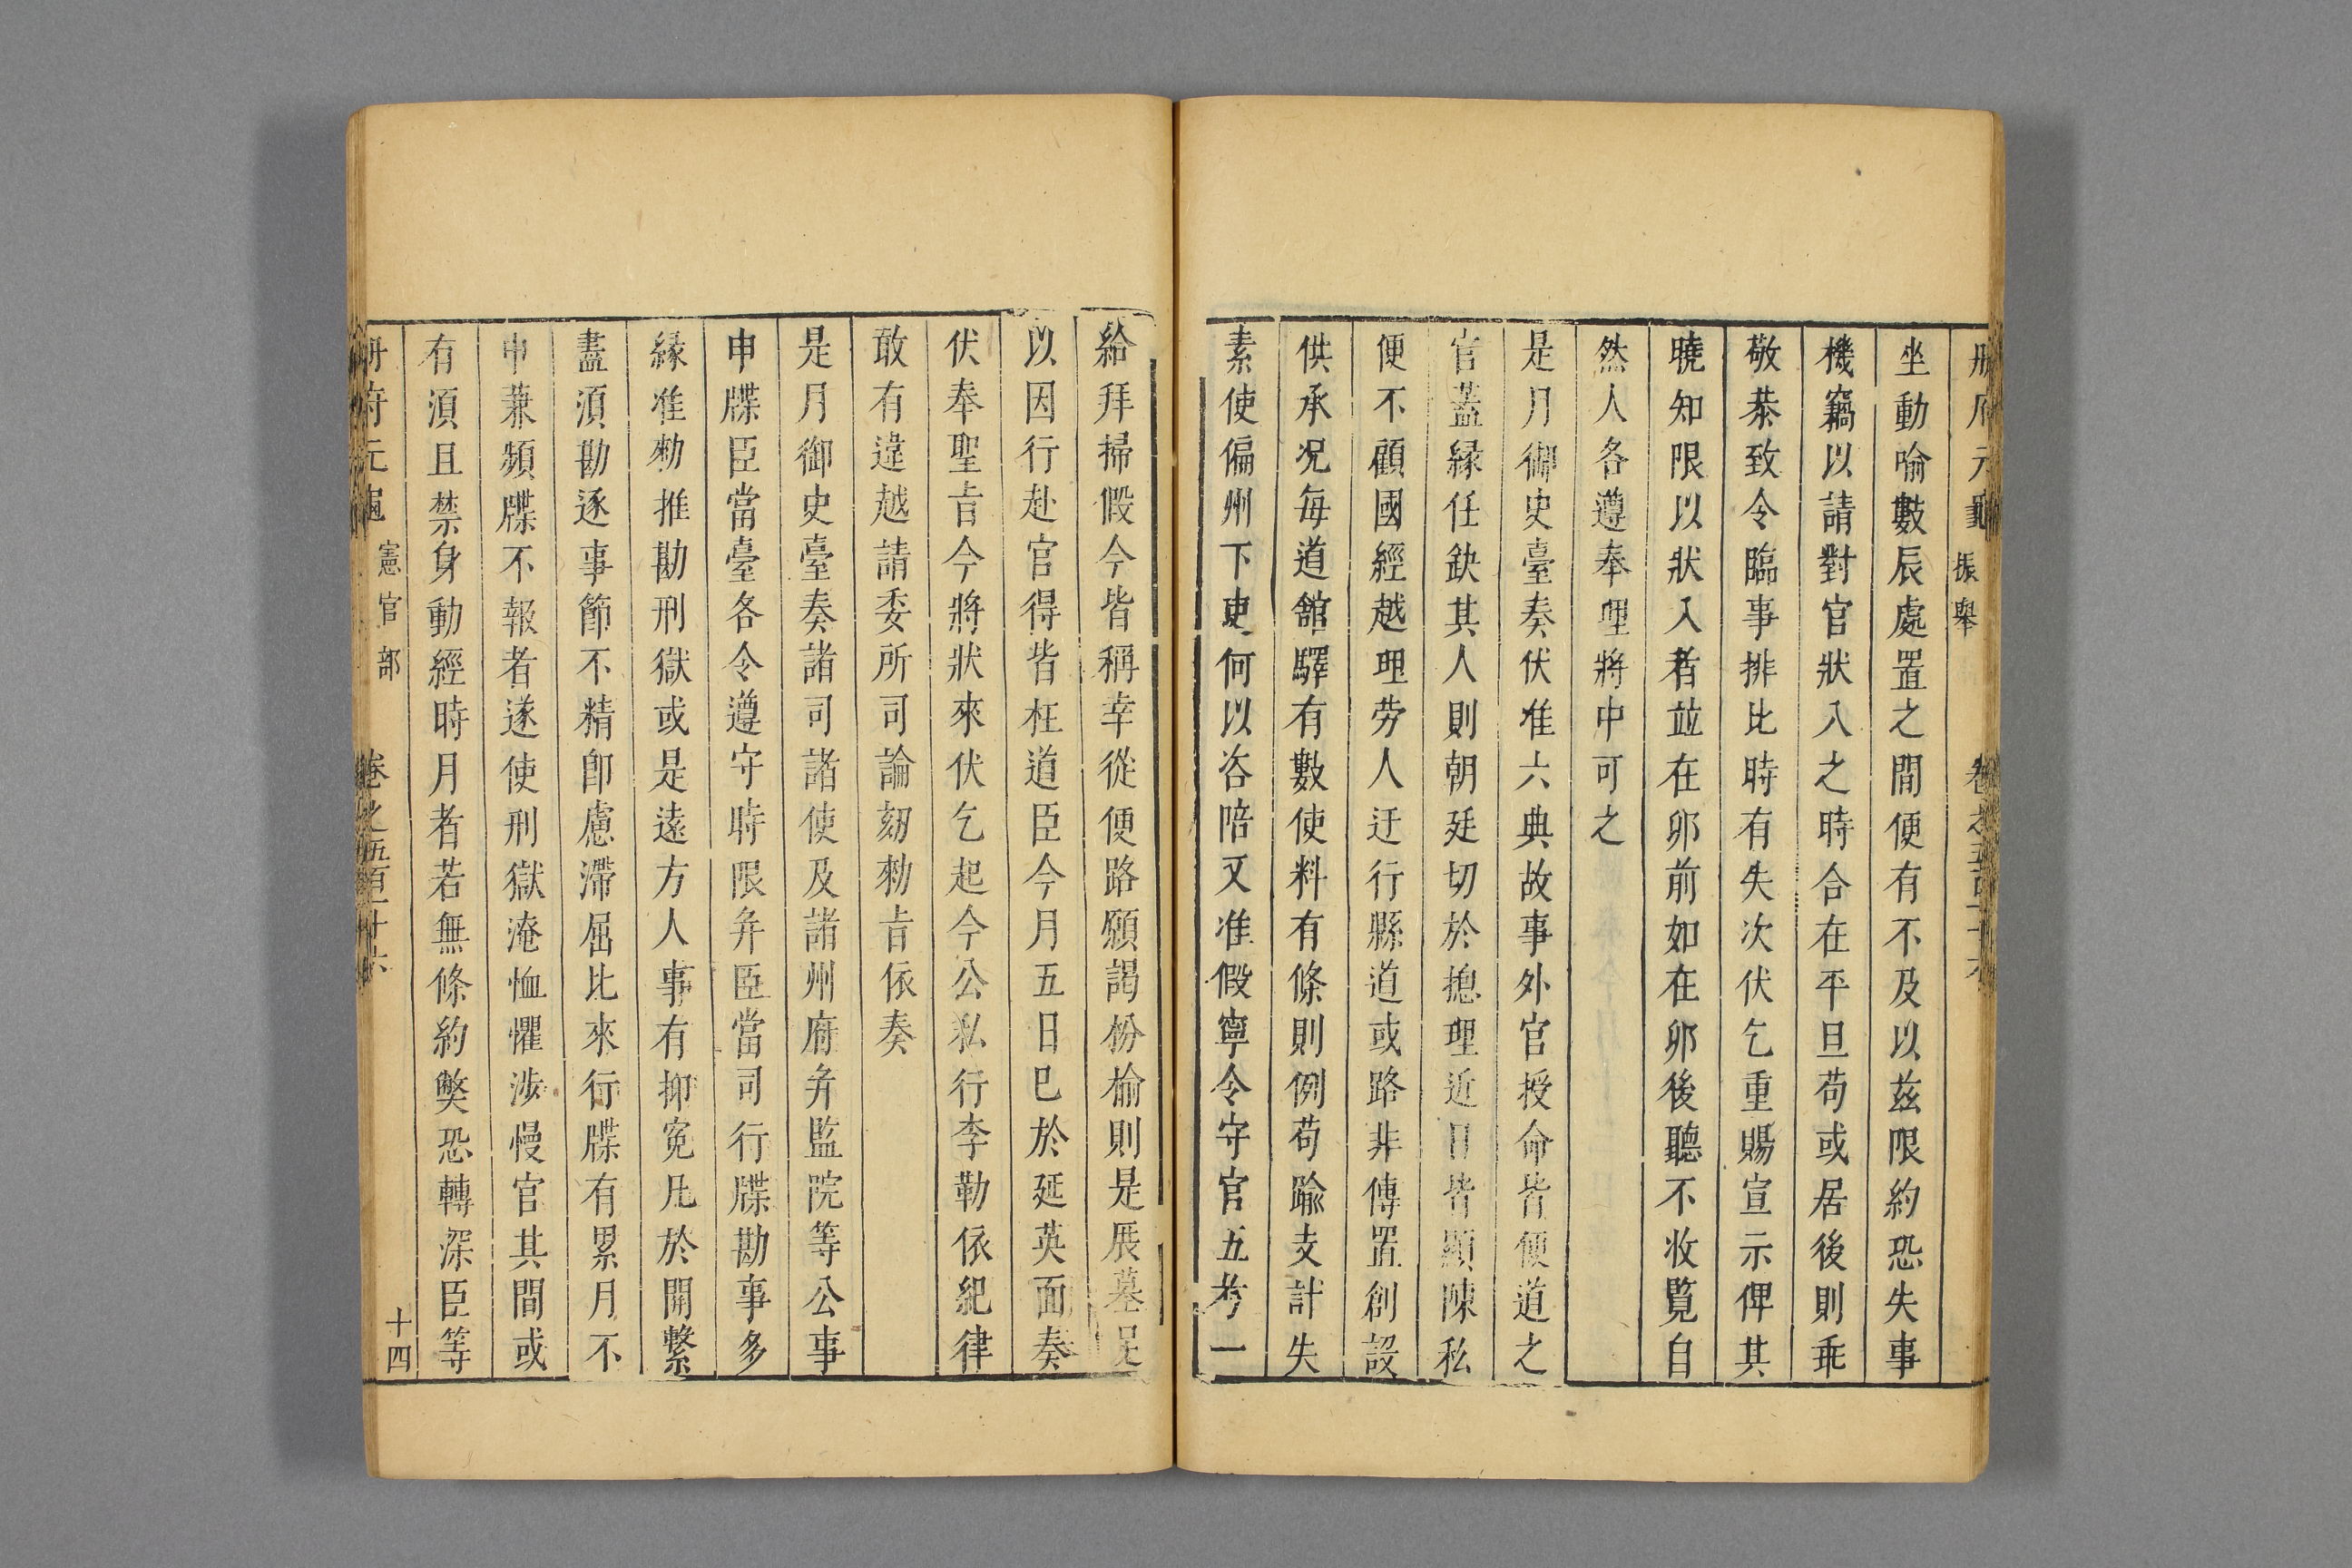 冊府元龜 振舉 卷之五百十六
坐動喻數辰處置之間便有不及以兹限約恐失事
機竊以請對官狀入之時合在平旦苟或居後則乖
敬恭致令臨事排比時有失次伏乞重賜宣示俾其
曉知限以狀入者並在卯前如在卯後聽不收覧自
然人各遵奉理將中可之
是月御史臺奏伏准六典故事外官授命皆便道之
官蓋緣任缺其人則朝廷切於摠理近日皆顯陳私
便不顧國經越理劳人迂行縣道或路非傳置創設
供承况每道舘驛有數使料有條則例苟踰支計失
素使偏州下吏何以咨陪又准假寧令守官五考一
給拜掃假今皆稱幸從便路願謁枌榆則是展墓足
以因行赴官得皆枉道臣今月五日巳於延英面奏
伏奉聖㫖今將狀來伏乞起今公私行李勒依紀律
敢有違越請委所司論劾勑㫖依奏
是月御史臺奏諸司諸使及諸州府并監院等公事
申牒臣當臺各令遵守時限并臣當司行牒勘事多
緣准勑推勘刑獄或是遠方人事有抑寃凡於關繫
盡須勘逐事節不精卽慮滯屈比來行牒有累月不
申兼頻牒不報者遂使刑獄淹恤懼涉慢官其間或
有須且禁身動經時月者若無條約弊恐轉深臣等
冊府元龜 憲官部 卷之五百十六 十四